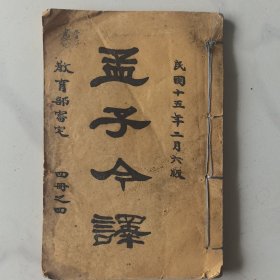 民國十五年二月六版
孟子今譯
教育部審定
四冊之四